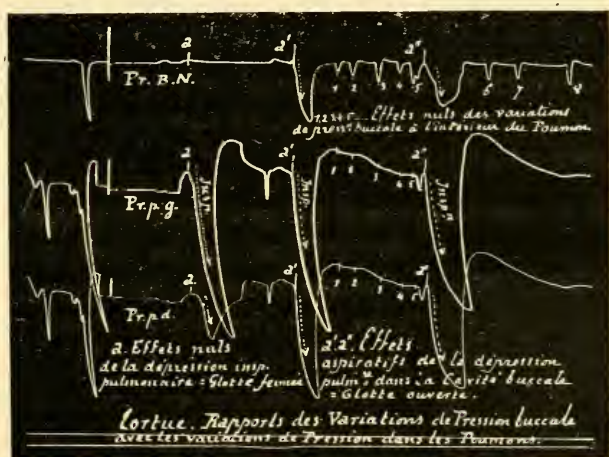 2 2' 2"
Pr. B. N.
1 2 3 4 5 6 7 8
1.2.3.4.5 ... Effets nuls des variations
de pres^on buccale à l'intérieur du Poumon.
2 2' 2"
Insp^n Insp^n Insp^n
Pr. p. g.
1 2 3 4 5
2 2' 2"
Pr. p d.
1 2 3 4 5
2. Effets nuls
de la dépression insp.
pulmonaire = Glotte fermée
2'2". Effets
aspiratifs de la dépression
pulm^re dans la Cavité buccale
= Glotte ouverte.
Tortue. Rapports des Variations de Pression buccale
avec les variations de Pression dans les Poumons.